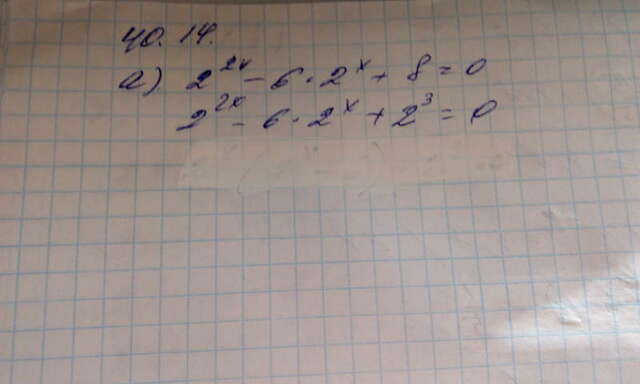 40.14.
а) 2^{2x} - 6 · 2^x + 8 = 0
2^{2x} - 6 · 2^x + 2^3 = 0